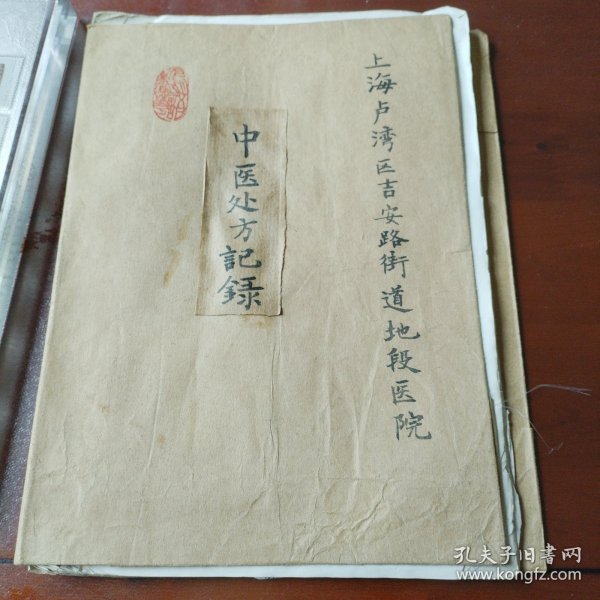 上海卢湾区吉安路街道地段医院
中医处方記録
孔夫子旧书网
www.kongfz.com